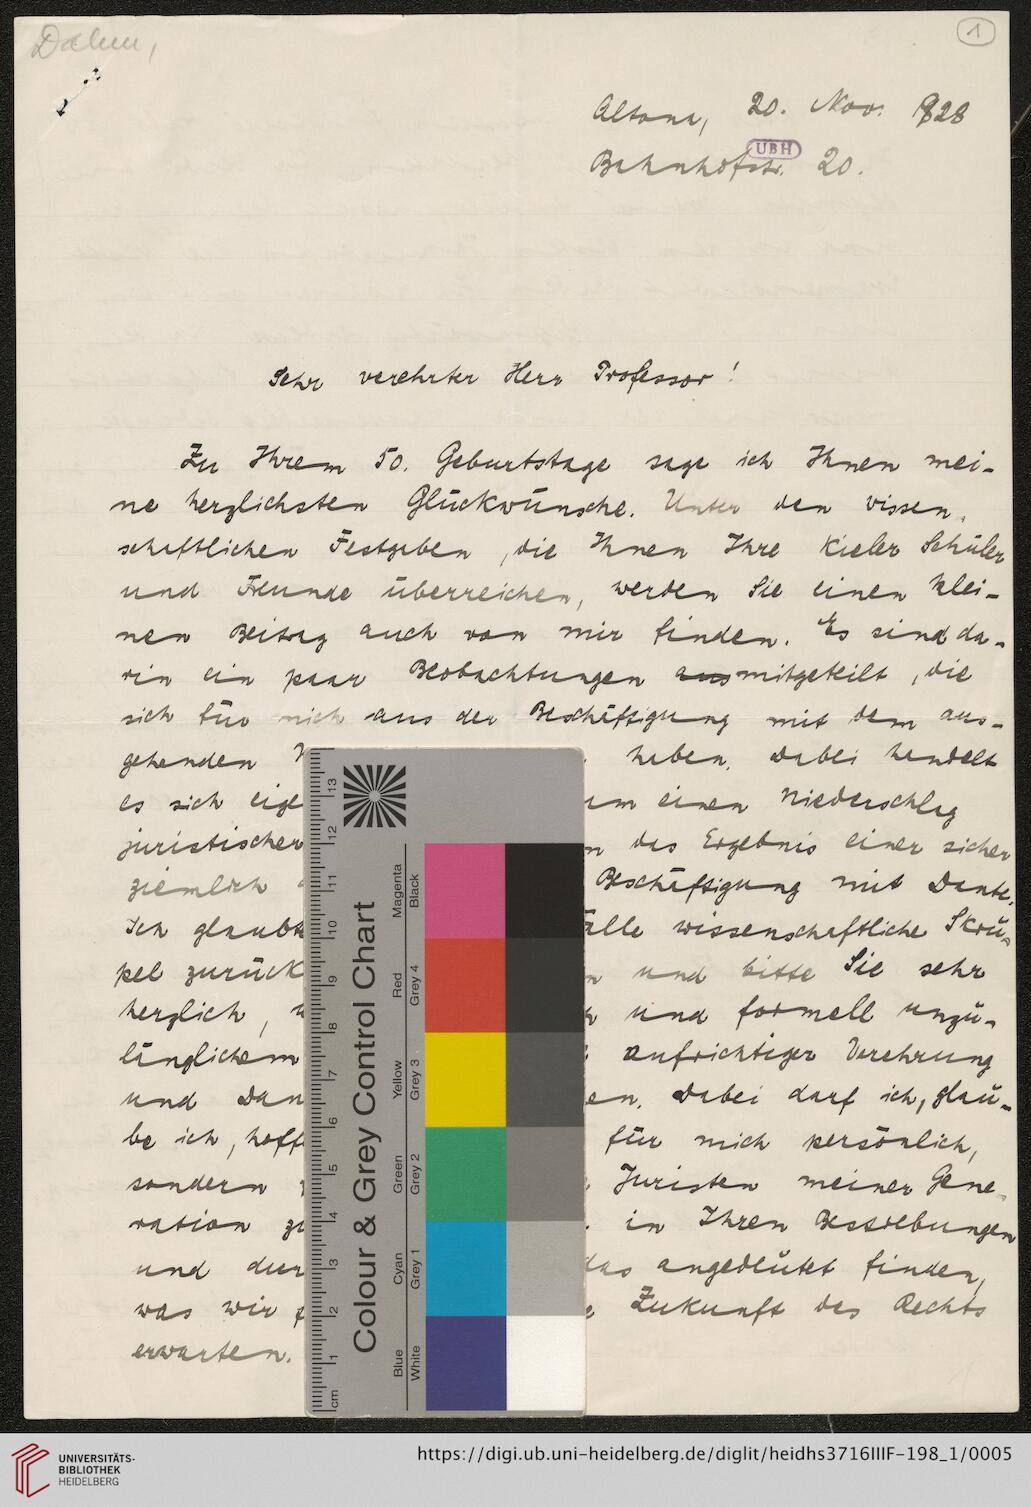 Dahm,
1
Altona, 20. Nov. 1928
Bahnhofstr. 20.
UBH
Sehr verehrter Herr Professor!
Zu Ihrem 50. Geburtstage sage ich Ihnen mei-
ne herzlichsten Glückwünsche. Unter den wissen-
schaftlichen Festgaben, die Ihnen Ihre Kieler Schüler
und Freunde überreichen, werden Sie einen klei-
nen Beitrag auch von mir finden. Es sind da-
rin ein paar Beobachtungen aus mitgeteilt, die
sich für mich aus der Beschäftigung mit dem aus-
gehenden haben. Dabei handelt
es sich um einen Niederschlag
juristischer das Ergebnis einer sicher
ziemlich Beschäftigung mit Dante.
Ich glaubte alle wissenschaftliche Skru-
pel zurück und bitte Sie sehr
herzlich, und formell unzu-
länglichem aufrichtiger Verehrung
und Dan en. Dabei darf ich, glau-
be ich, hoff für mich persönlich,
sondern Juristen meiner Gene-
ration zu in Ihren Bestrebungen
und dur das angedeutet finden,
was wir Zukunft des Rechts
erwarten.
Colour & Grey Control Chart
Blue Cyan Green Yellow Red Magenta
White Grey 1 Grey 2 Grey 3 Grey 4 Black
cm 1 2 3 4 5 6 7 8 9 10 11 12 13
UNIVERSITÄTS-
BIBLIOTHEK
HEIDELBERG
https://digi.ub.uni-heidelberg.de/diglit/heidhs3716IIIF-198_1/0005